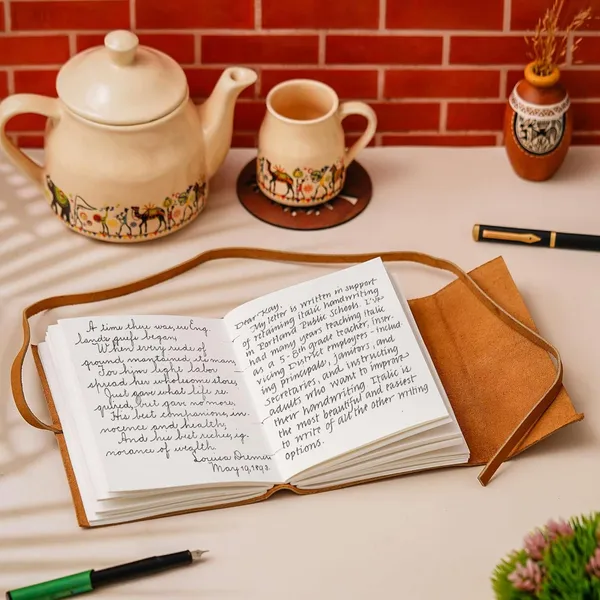 A time there was, ere Eng
lands griefs began,
When every rude of
ground maintained its man;
For him light labor
spread her wholesome store,
Just gave what life re
quired but gave no more,
His best companions, in
nocence and health;
And his best riches, ig
norance of wealth.
Louisa
May 19, 1893
Dear Kay,
My letter is written in support
of retaining italic handwriting
in Portland Public Schools. I've
had many years teaching italic
as a 5-8th grade teacher, inser-
vicing District employees - includ-
ing principals, janitors, and
secretaries, and instructing
adults who want to improve
their handwriting. Italic is
the most beautiful and easiest
to write of all the other writing
options.